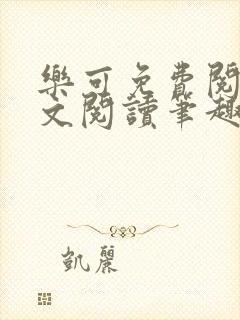 樂可免費閱
文閱讀筆趣
凱麗